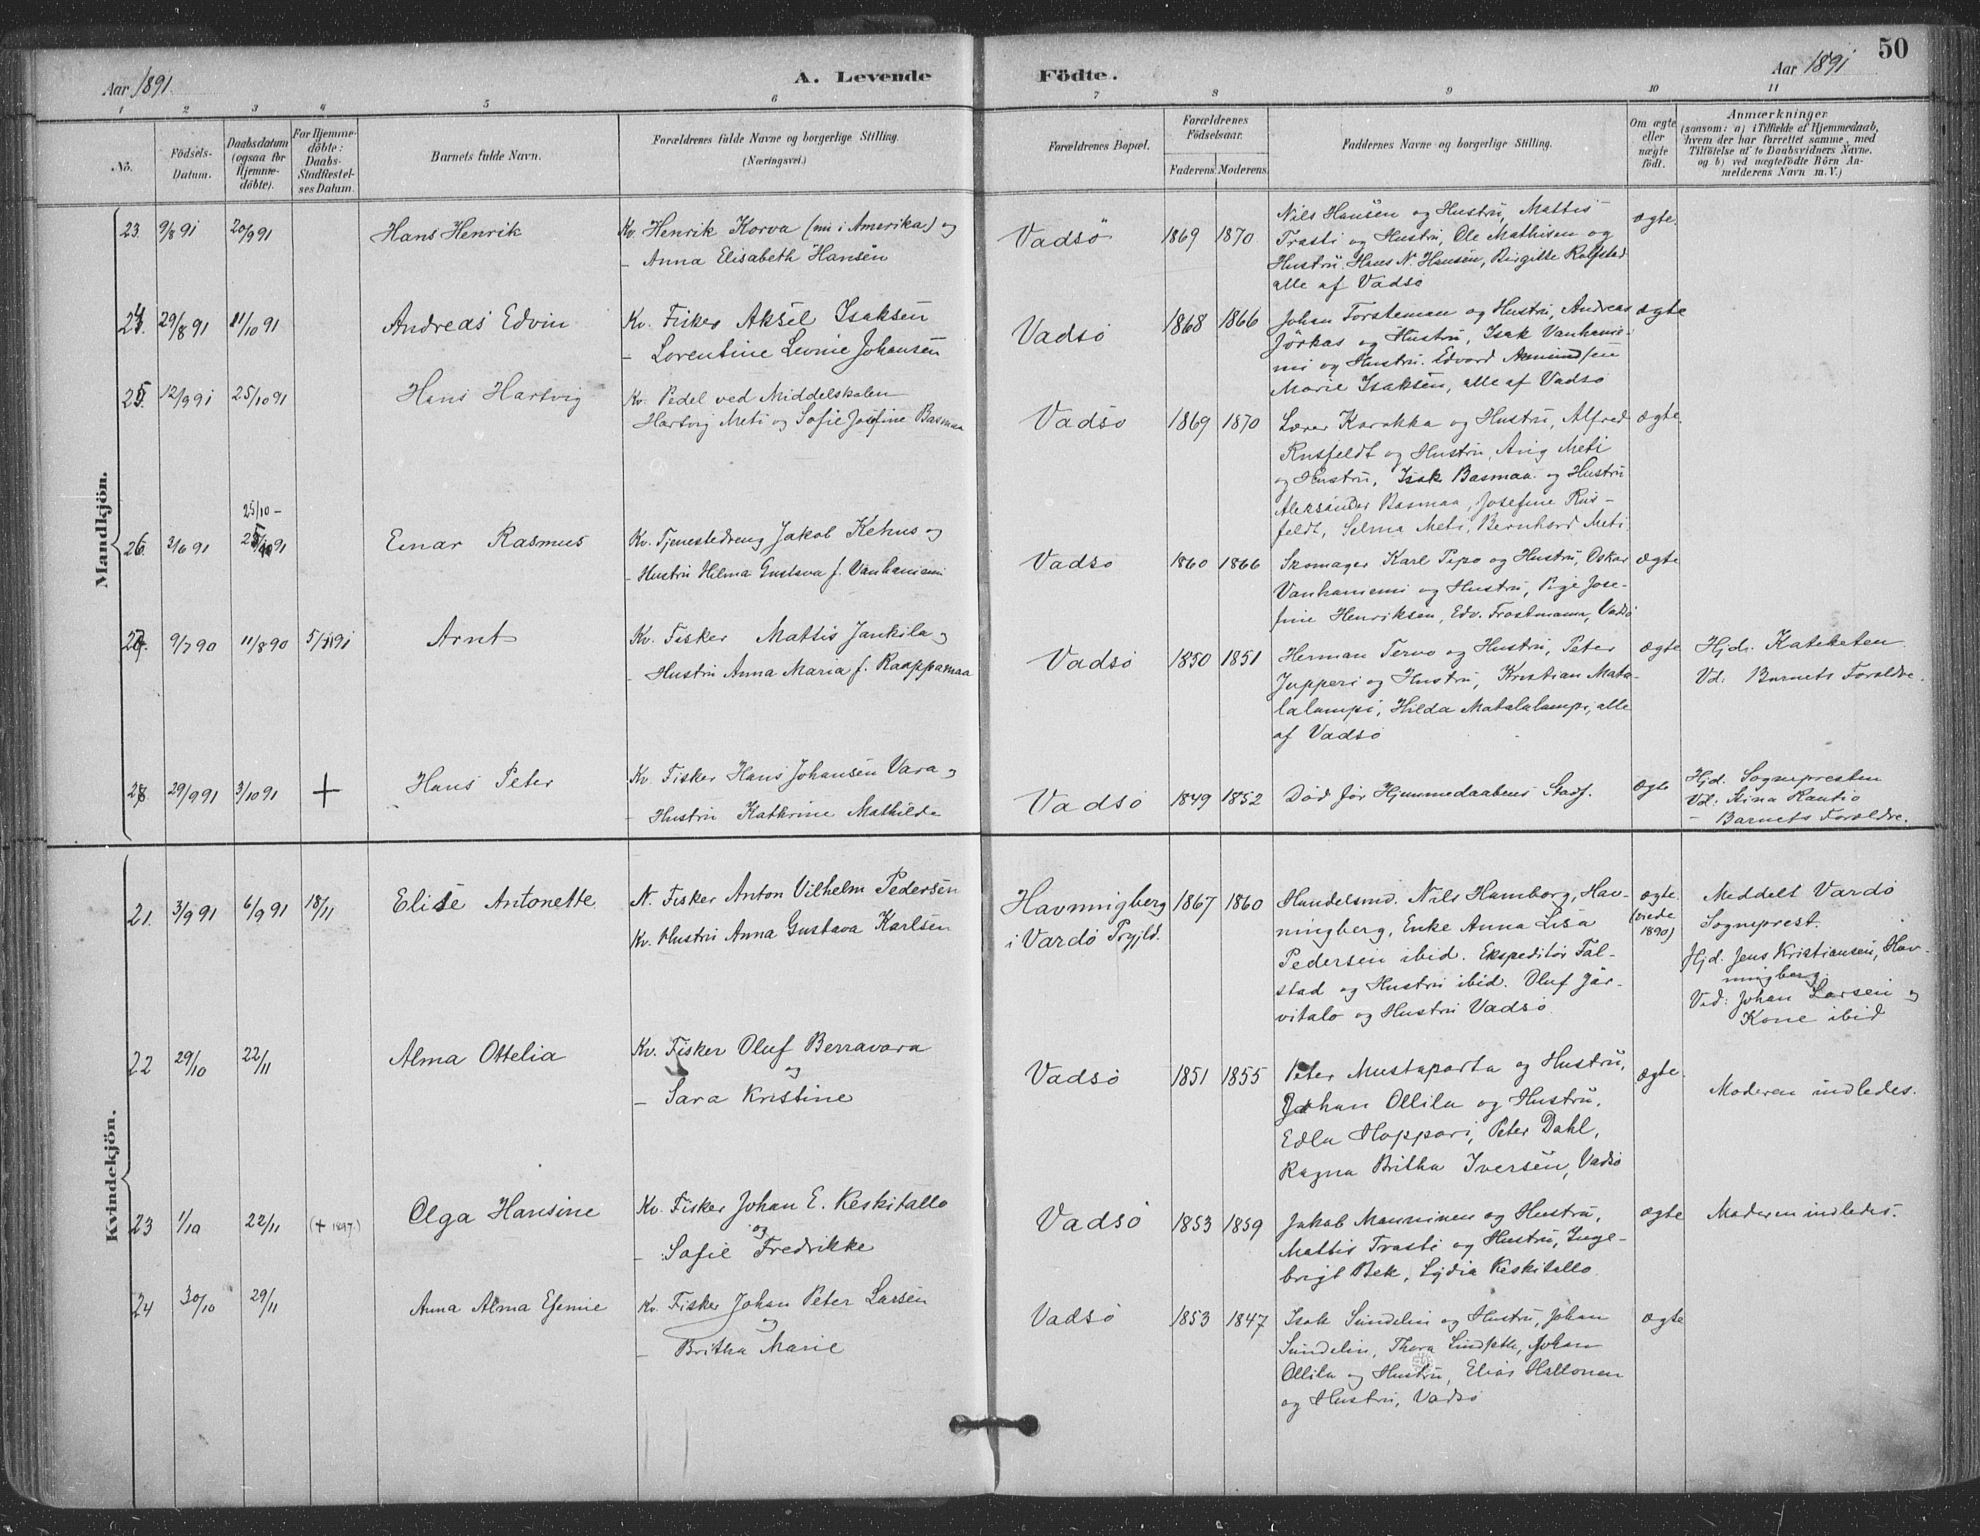 50
Aar 1891.
A. Levende Födte.
Aar 1891
1 2 3 4 5 6 7 8 9 10 11
No.
Födsels-Datum.
Daabsdatum (ogsaa for Hjemmedöbte).
For Hjemmedöbte: Daabs-Stadfæstelses Datum.
Barnets fulde Navn.
Forældrenes fulde Navne og borgerlige Stilling. (Næringsvei.)
Forældrenes Bopæl.
Forældrenes Födselsaar.
Faderens. Moderens.
Faddernes Navne og borgerlige Stilling.
Om ægte eller uægte födt.
Anmærkninger (saasom: a) i Tilfælde af Hjemmedaab, hvem der har forrettet samme, med Tilföielse af to Daabsvidners Navne, og b) ved uægtefödte Börn Anmelderens Navn m. V.)
Mandkjön.
23. 9/8 91 20/9 91 Hans Henrik
Kv. Henrik Korva (nu i Amerika) og
– Anna Elisabeth Hansen
Vadsö 1869 1870
Nils Hansen og Hustru, Mattis
Trasti og Hustru, Ole Mathisen og
Hustru. Hans N. Hansen, Birgitte Rolfstad
alle af Vadsö
ægte.
24. 29/8 91 11/10 91 Andreas Edvin
Kv. Fisker Aksel Isaksen
– Lorentine Levine Johansen
Vadsö 1868 1866
Johan Forsteman og Hustru, Andreas
Jörkas og Hustru, Isak Vanhanie-
mi og Hustru. Edvard Amundsen
Marie Isaksen, alle af Vadsö
ægte
25. 12/9 91 25/10 91 Hans Hartvig
Kv. Pedel ved Middelskolen
Hartvig Meti og Sofie Josefine Basmaa
Vadsö 1869 1870
Lærer Karakka og Hustru, Alfred
Rusfeldt og Hustru, Aug Meti
og Hustru, Isak Basmaa og Hustru
Aleksander Basmaa, Josefine Rus-
feldt, Selma Meti, Bernhard Meti.
ægte.
25/10 –
26. 3/6 91 Einar Rasmus
Kv. Tjenestedreng Jakob Kehus og
– Hustru Helma Gustava f. Vanhaniemi
Vadsö 1860 1866
Skomager Karl Pipo og Hustru, Oskar
Vanhaniemi og Hustru, Pige Jose-
fine Henriksen, Edv. Frostmann, Vadsö
ægte
27. 9/7 90 11/8 90 5/11 91 Arnt
Kv. Fisker Mattis Jankila og
– Hustru Anna Maria f. Raappamaa
Vadsö 1850 1851
Herman Tervo og Hustru, Peter
Jupperi og Hustru, Kristian Mata-
lalampi, Hilda Matalalampi, alle
af Vadsö
ægte
Hjd. Kateketen
Vd: Barnets Forældre.
28. 29/9 91 3/10 91 + Hans Peter
Kv. Fisker Hans Johansen Vara og
– Hustru Kathrine Mathilde
Vadsö 1849 1852
Död för Hjemmedaabens Stadf.
ægte
Hjd. Sognepresten
Vd: Stina Rautio
– Barnets Forældre.
Kvindekjön.
21. 3/9 91 6/9 91 18/11 Elise Antonette
N. Fisker Anton Vilhelm Pedersen
Kv. Hustru Anna Gustava Karlsen
Havningberg
i Vardö Prgjld.
1867 1860
Handelsmd. Nils Hamborg, Hav-
ningberg, Enke Anna Lisa
Pedersen ibid. Ekspeditör Fal-
stad og Hustru ibid. Oluf Jär-
vitalo og Hustru Vadsö.
ægte.
(viede
1890)
Meddelt Vardö
Sogneprest.
Hjd. Jens Kristiansen, Hav-
ningberg.
Ved: Johan Larsen og
Kone ibid
22 29/10 22/11 Alma Ottelia
Kv. Fisker Oluf Berravara
og
– Sara Kristine
Vadsö 1851 1855
Peter Mustaparta og Hustru,
Johan Ollila og Hustru,
Edla Hoppari, Peter Dahl,
Ragna Britha Iversen, Vadsö
ægte.
Moderen indledes.
23 1/10 22/11 (+ 1897.) Olga Hansine
Kv. Fisker Johan E. Keskitallo
og
– Sofie Fredrikke
Vadsö 1853 1859
Jakob Manninen og Hustru,
Mattis Trasti og Hustru, Inge-
brigt Bek, Lydia Keskitallo
ægte
Moderen indledes.
24 30/10 29/11 Anna Alma Efemie
Kv. Fisker Johan Peter Larsen
og
– Britha Marie
Vadsö 1853 1847
Isak Sundelin og Hustru, Johan
Sundelin, Thora Lindseth, Johan
Ollila og Hustru, Elias Hallonen
og Hustru, Vadsö
ægte